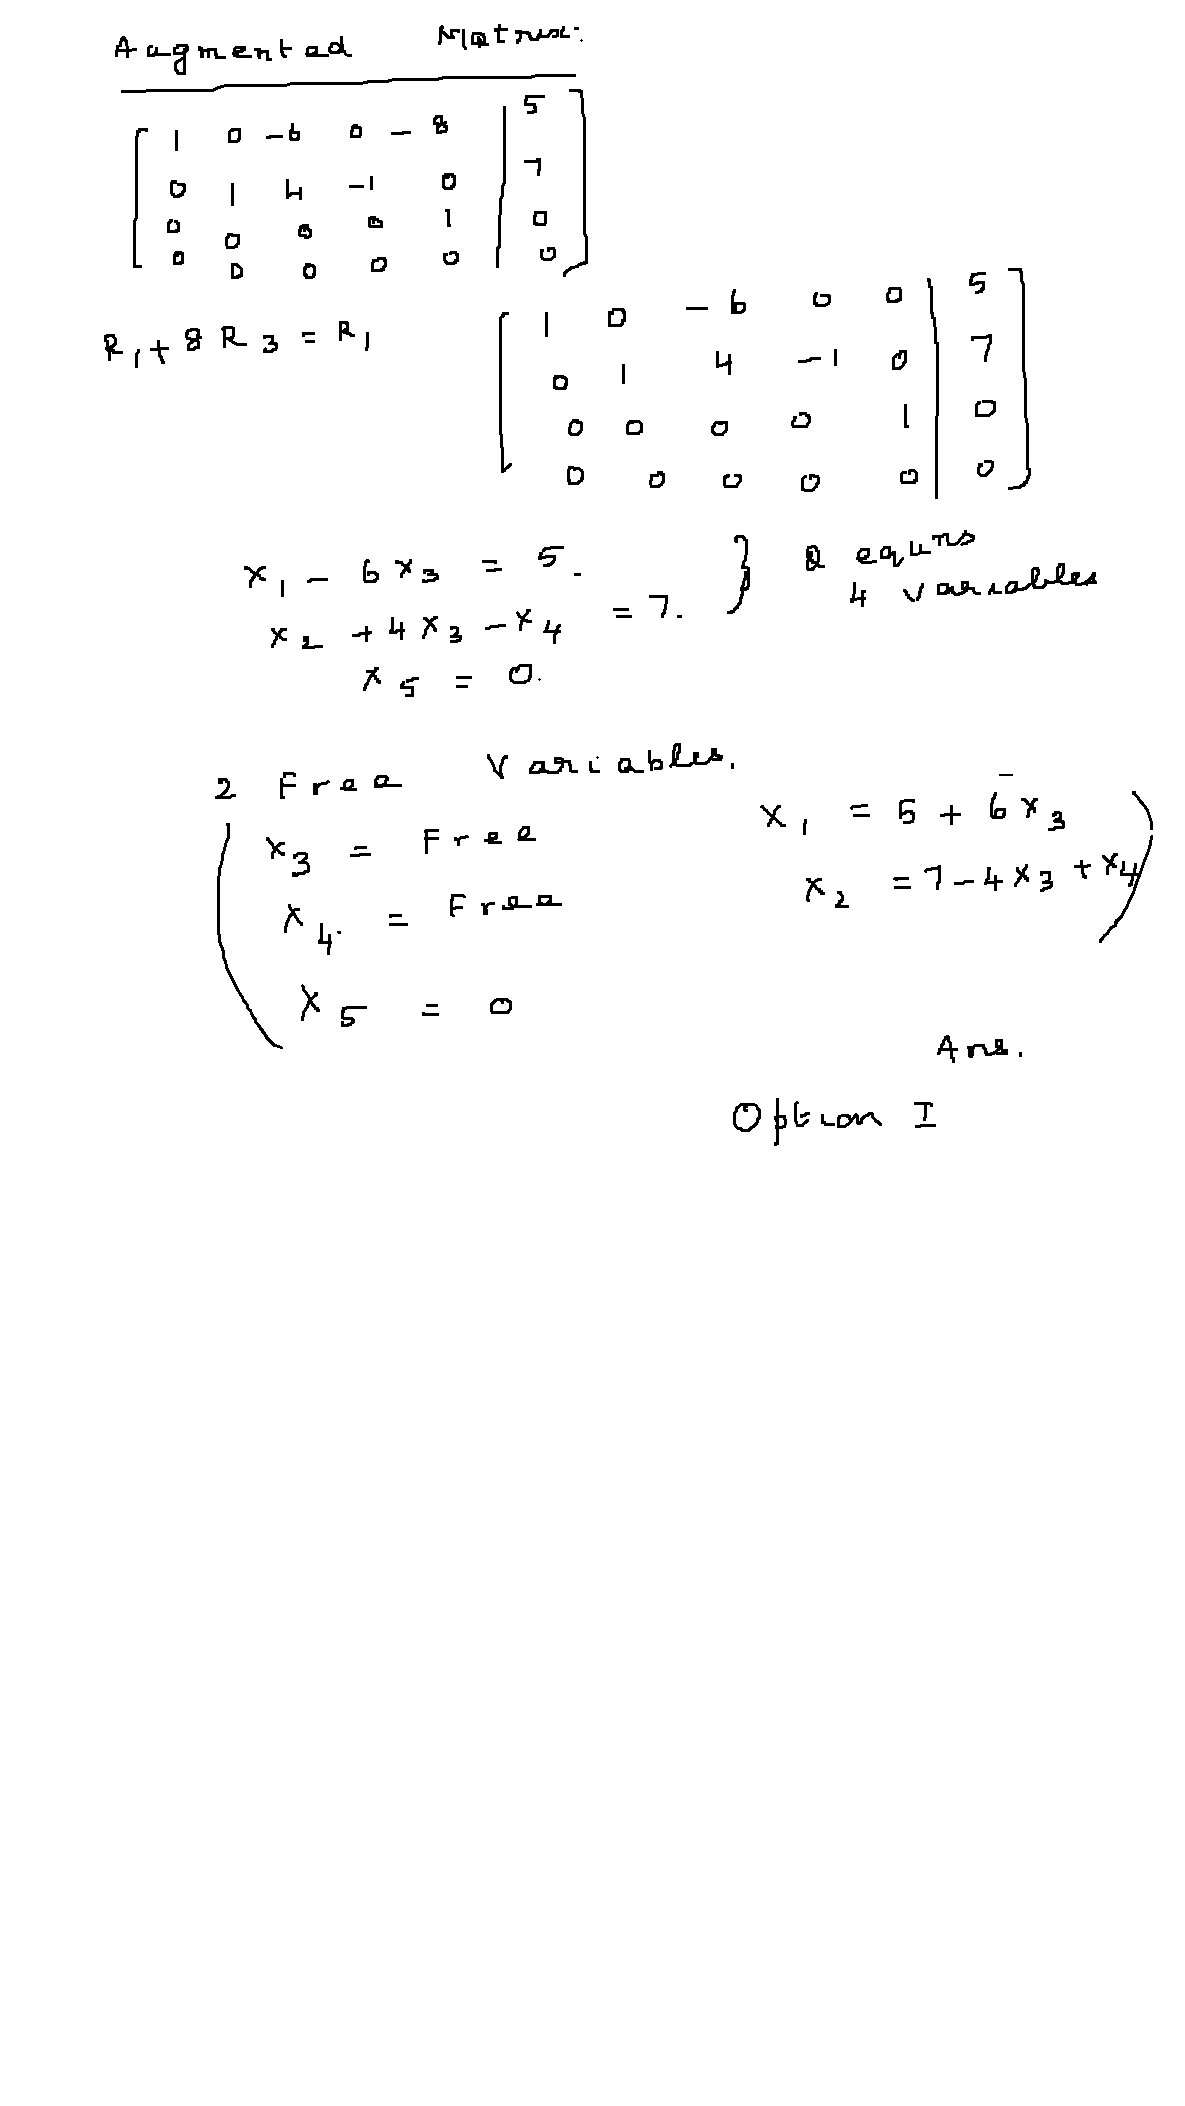 Augmented Matrix:
1 0 -6 0 -8 | 5
0 1 4 -1 0 | 7
0 0 0 0 1 | 0
0 0 0 0 0 | 0
R1 + 8R3 = R1
1 0 -6 0 0 | 5
0 1 4 -1 0 | 7
0 0 0 0 1 | 0
0 0 0 0 0 | 0
x1 - 6x3 = 5.
x2 + 4x3 - x4 = 7.
} 2 equns
4 variables
x5 = 0.
2 Free Variables.
x3 = Free
x4 = Free
x5 = 0
x1 = 5 + 6x3
x2 = 7 - 4x3 + x4
Ans.
Option I